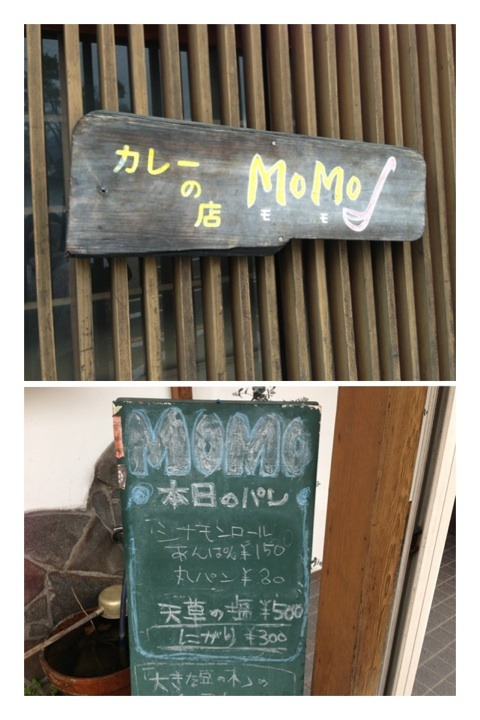 カレー
の
店
MoMo
モ モ
MOMO
本日のパン
シナモンロール
あんぱん ¥150
丸パン ¥30
天草の塩 ¥500
にがり ¥300